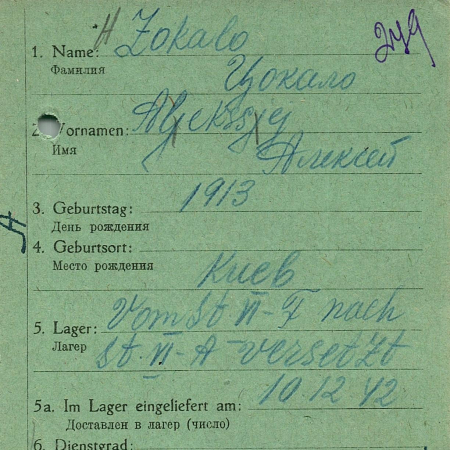 1. Name: Zokalo
249
Фамилия
Цокало
2. Vornamen: Aleksej
Имя
Алексей
3. Geburtstag: 1913
День рождения
4. Geburtsort:
Место рождения
Киев
5. Lager: Vom St VI-F nach
Лагер
St. VI-A versetzt
5a. Im Lager eingeliefert am: 10 12 42
Доставлен в лагер (число)
6. Dienstgrad: